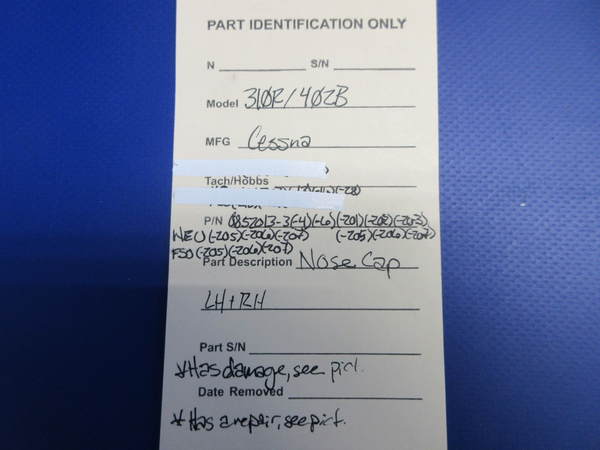 PART IDENTIFICATION ONLY
N S/N
Model 310R/402B
MFG Cessna
Tach/Hobbs
P/N 0852013-3(-4)(-6)(-201)(-202)(-203)
NEU(-205)(-206)(-207) (-205)(-206)(-207)
FSO(-205)(-206)(-207)
Part Description Nose Cap
LH+RH
Part S/N
*Has damage, see pict.
Date Removed
*Has a repair, see pict.